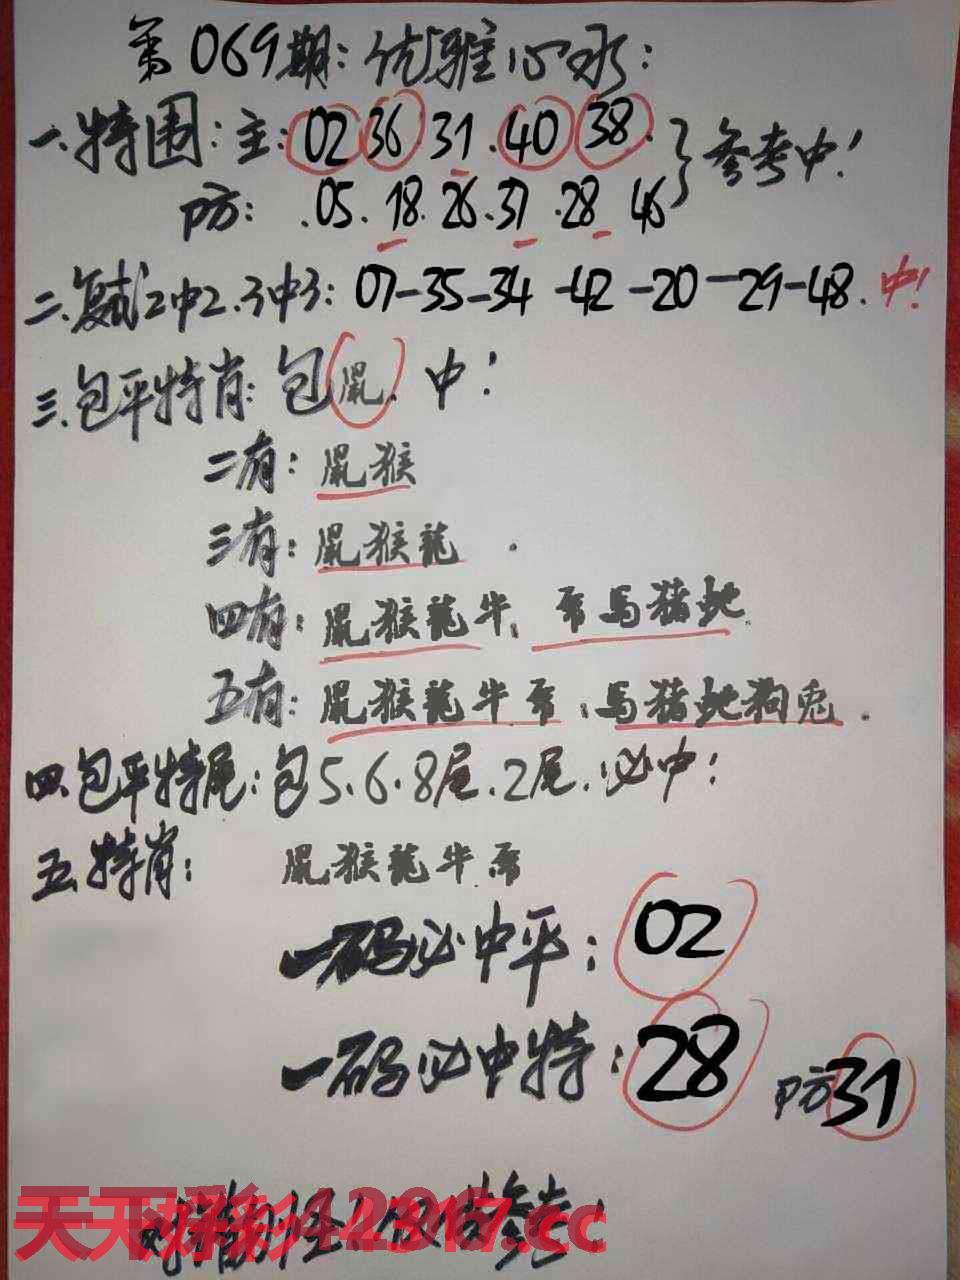 第069期：优雅心水：
一.特围：主：02 36 31.40 38.
参考中！
防：.05.18.26.37.28 46
二.复试2中2.3中3：07-35-34-42-20-29-48.中！
三.包平特肖：包鼠.中！
二有：鼠猴
三有：鼠猴龍.
四有：鼠猴龍牛.马猪蛇.
五有：鼠猴龍牛.马猪蛇狗兎.
四.包平特尾：包5.6.8尾.2尾.必中！
五.特肖：鼠猴龍牛
一码必中平：02
一码必中特：28 防31
天下彩 .cc
参考！